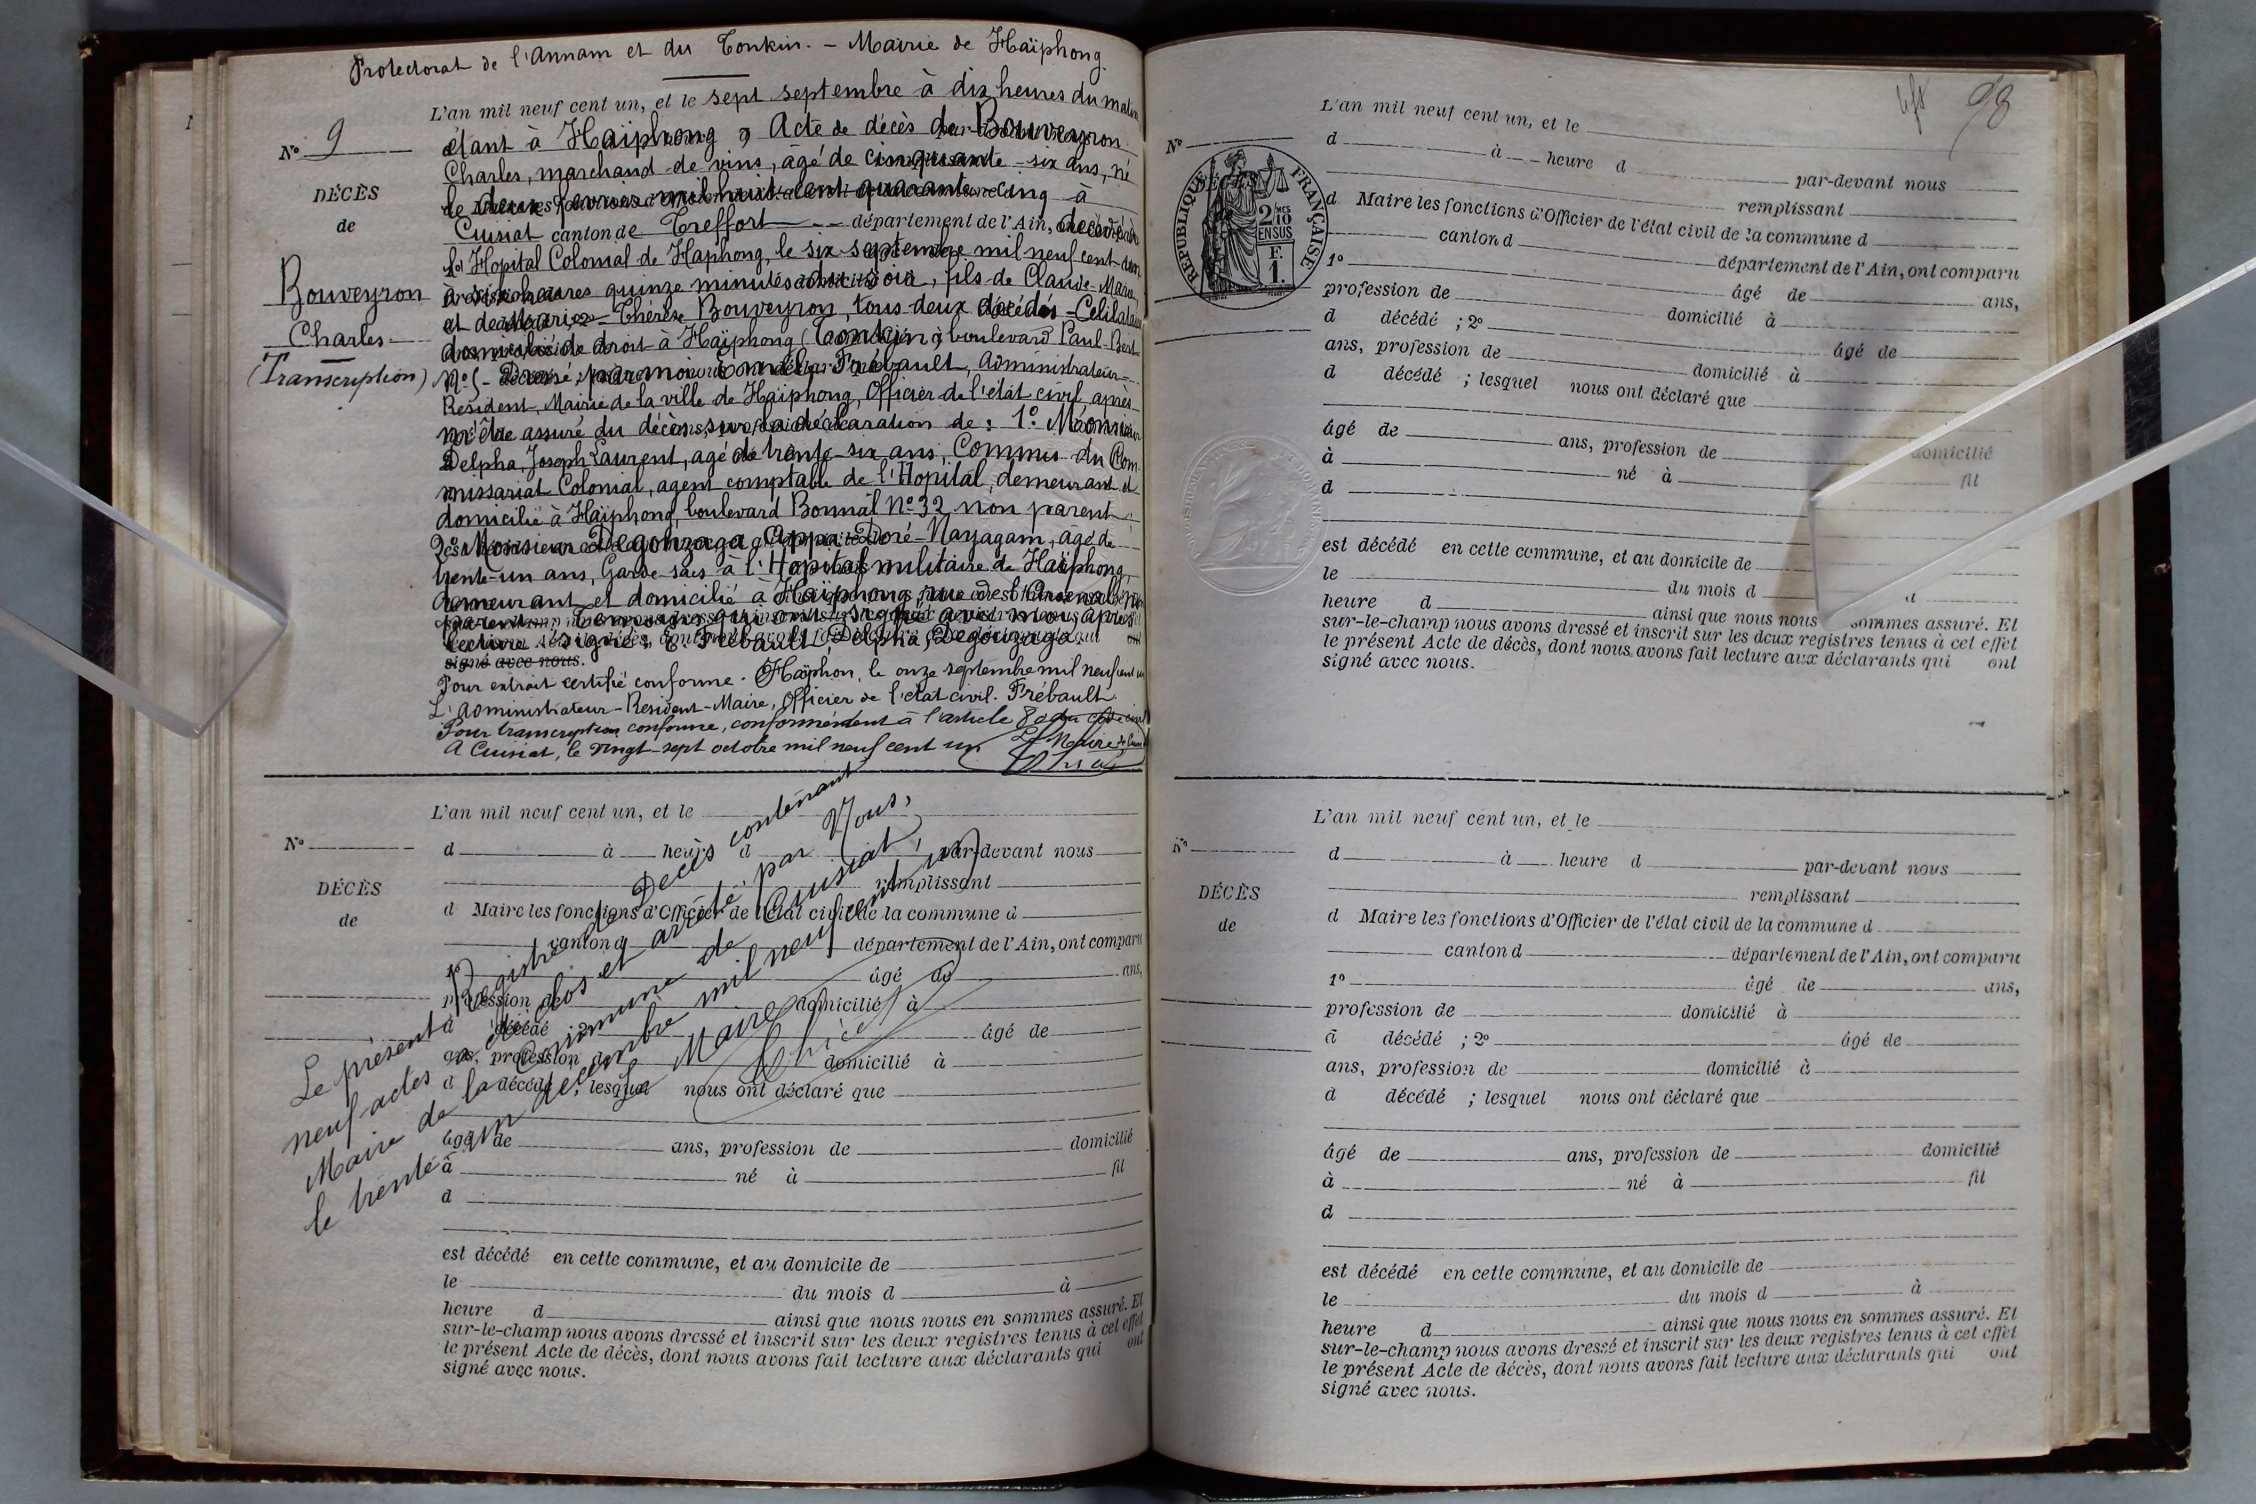 Protectorat de l'Annam et du Tonkin. - Mairie de Haïphong.
L'an mil neuf cent un, et le sept septembre à dix heures du matin
étant à Haïphong, Acte de décès de Bouveyron
Charles, marchand de vins, âgé de cinquante-six ans, né
le deux janvier mil huit cent quarante cinq à
Cuisiat canton de Treffort département de l'Ain, décédé à
l'Hopital Colonial de Haïphong, le six septembre mil neuf cent un
à six heures quinze minutes du soir, fils de Claude-Marie
et de Marie-Thérèse Bouveyron, tous deux décédés - Célibataire
domicilié de droit à Haïphong (Tonkin) boulevard Paul-Bert
Nº Dressé par moi Emile Frébault, Administrateur-
Résident, Maire de la ville de Haïphong, Officier de l'état civil, après
m'être assuré du décès, sur la déclaration de : 1º Monsieur
Delpha, Joseph Laurent, agé de trente-six ans, Commis du Com-
missariat Colonial, agent comptable de l'Hopital, demeurant et
domicilié à Haïphong, boulevard Bonnal Nº 32 non parent
2º Monsieur Degonzaga Appa-Doré-Nayagam, âgé de
trente-un ans, Garde à l'Hopital militaire de Haïphong,
demeurant et domicilié à Haïphong, rue de l'Arsenal, non
parent. Témoins qui ont signé avec nous après
lecture. Signés : E. Frébault, Delpha, Degonzaga.
signé avec nous.
Pour extrait certifié conforme. Haïphon, le onze septembre mil neuf cent un
L'administrateur-Résident-Maire, Officier de l'état civil. Frébault
Pour transcription conforme, conformément à l'article 80 du code civil
A Cuisiat, le vingt-sept octobre mil neuf cent un Le Maire
Nº 9
DÉCÈS
de
Bouveyron
Charles
(Transcription)
L'an mil neuf cent un, et le
Nº
d à heure d par-devant nous
remplissant
DÉCÈS
d Maire les fonctions d'Officier de l'état civil de la commune d
de
canton d département de l'Ain, ont comparu
1º âgé de ans,
profession de domicilié à
d décédé ; 2º âgé de
ans, profession de domicilié à
d décédé ; lesquel nous ont déclaré que
âgé de ans, profession de domicilié
à né à fil
d
est décédé en cette commune, et au domicile de
le du mois d à
heure d ainsi que nous nous en sommes assuré. Et
sur-le-champ nous avons dressé et inscrit sur les deux registres tenus à cet effet
le présent Acte de décès, dont nous avons fait lecture aux déclarants qui ont
signé avec nous.
Le présent Registre de Décès contenant
neuf actes a été clos et arrêté par Nous,
Maire de la Commune de Cuisiat,
le trente-un décembre mil neuf cent un
Le Maire
98
L'an mil neuf cent un, et le
Nº
d à heure d
par-devant nous
remplissant
RÉPUBLIQUE FRANÇAISE
2/10 EN SUS
F. 1.
d Maire les fonctions d'Officier de l'état civil de la commune d
canton d département de l'Ain, ont comparu
1º âgé de ans,
profession de domicilié à
d décédé ; 2º âgé de
ans, profession de domicilié à
d décédé ; lesquel nous ont déclaré que
âgé de ans, profession de domicilié
à né à fil
d
est décédé en cette commune, et au domicile de
le du mois d à
heure d ainsi que nous nous sommes assuré. Et
sur-le-champ nous avons dressé et inscrit sur les deux registres tenus à cet effet
le présent Acte de décès, dont nous avons fait lecture aux déclarants qui ont
signé avec nous.
L'an mil neuf cent un, et le
Nº
d à heure d par-devant nous
remplissant
DÉCÈS
de
d Maire les fonctions d'Officier de l'état civil de la commune d
canton d département de l'Ain, ont comparu
1º âgé de ans,
profession de domicilié à
d décédé ; 2º âgé de
ans, profession de domicilié à
d décédé ; lesquel nous ont déclaré que
âgé de ans, profession de domicilié
à né à fil
d
est décédé en cette commune, et au domicile de
le du mois d à
heure d ainsi que nous nous en sommes assuré. Et
sur-le-champ nous avons dressé et inscrit sur les deux registres tenus à cet effet
le présent Acte de décès, dont nous avons fait lecture aux déclarants qui ont
signé avec nous.